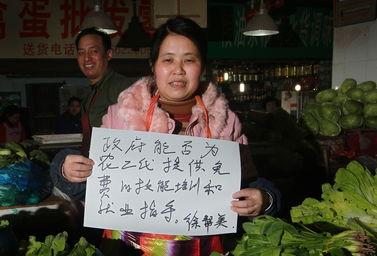 禽蛋批发
送货电话
政府能否为
农二代提供免
费的技能培训和
就业指导。徐